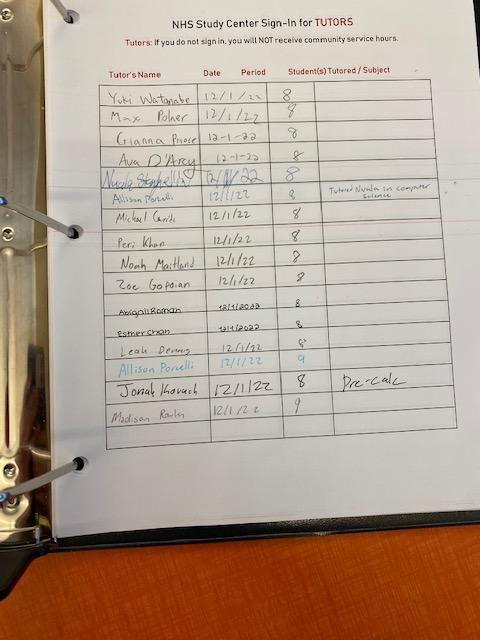 NHS Study Center Sign-In for TUTORS
Tutors: If you do not sign in, you will NOT receive community service hours.
Tutor's Name Date Period Student(s) Tutored / Subject
Yuki Watanabe 12/1/22 8
Max Polner 12/1/22 8
Gianna 12-1-22 8
Ava D'Arcy 12-1-22 8
22 8
Allison Porcelli 12/1/22 8 Tutored in computer
science
Michael 12/1/22 8
Peri Khan 12/1/22 8
Noah Maitland 12/1/22 8
Zoe Gopoian 12/1/22 8
Abigail Roman 12/1/2022 8
Esther Chan 12/1/2022 8
Leah 12/1/22 8
Allison Porcelli 12/1/22 9
Jonah 12/1/22 8 Pre-calc
Madison 12/1/22 9